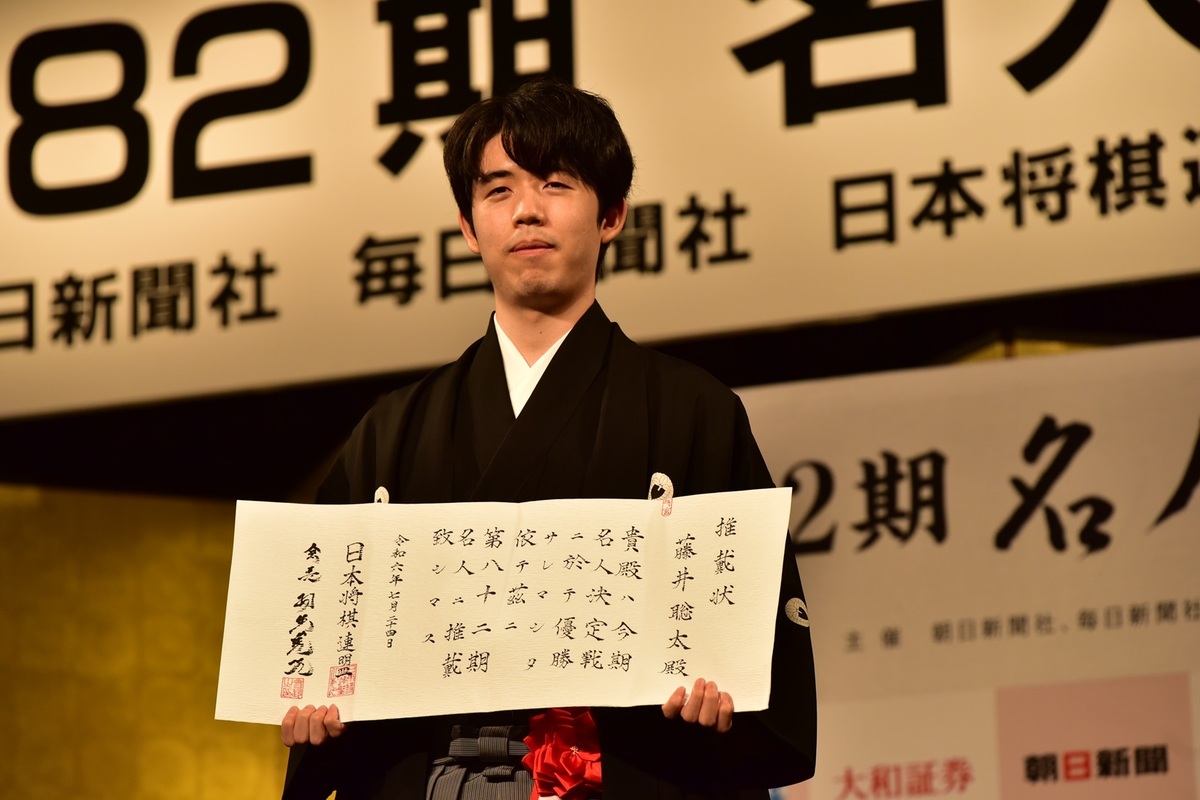 82期 名人
日新聞社 毎日 聞社 日本将棋連
2期 名人
主催 朝日新聞社、毎日新聞社
大和証券
朝日新聞
推戴状
藤井聡太殿
貴殿ハ今期
名人決定戦
ニ於テ優勝
サレマシタ
依テ茲ニ
第八十二期
名人ニ推戴
致シマス
令和六年七月二十四日
日本将棋連盟
会長 羽生善治